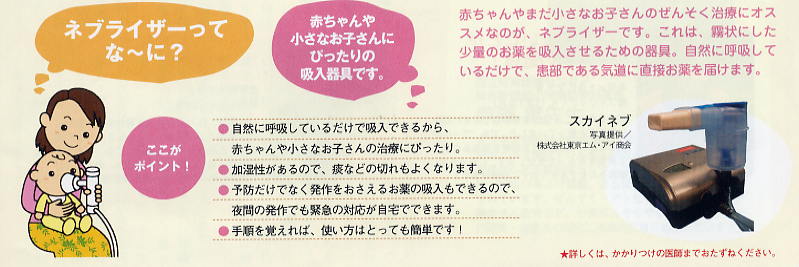 ネブライザーって
な〜に？
赤ちゃんや
小さなお子さんに
ぴったりの
吸入器具です。
赤ちゃんやまだ小さなお子さんのぜんそく治療にオス
スメなのが、ネブライザーです。これは、霧状にした
少量のお薬を吸入させるための器具。自然に呼吸して
いるだけで、患部である気道に直接お薬を届けます。
ここが
ポイント！
●自然に呼吸しているだけで吸入できるから、
赤ちゃんや小さなお子さんの治療にぴったり。
●加湿性があるので、痰などの切れもよくなります。
●予防だけでなく発作をおさえるお薬の吸入もできるので、
夜間の発作でも緊急の対応が自宅でできます。
●手順を覚えれば、使い方はとっても簡単です！
スカイネブ
写真提供／
株式会社東京エム・アイ商会
★詳しくは、かかりつけの医師までおたずねください。